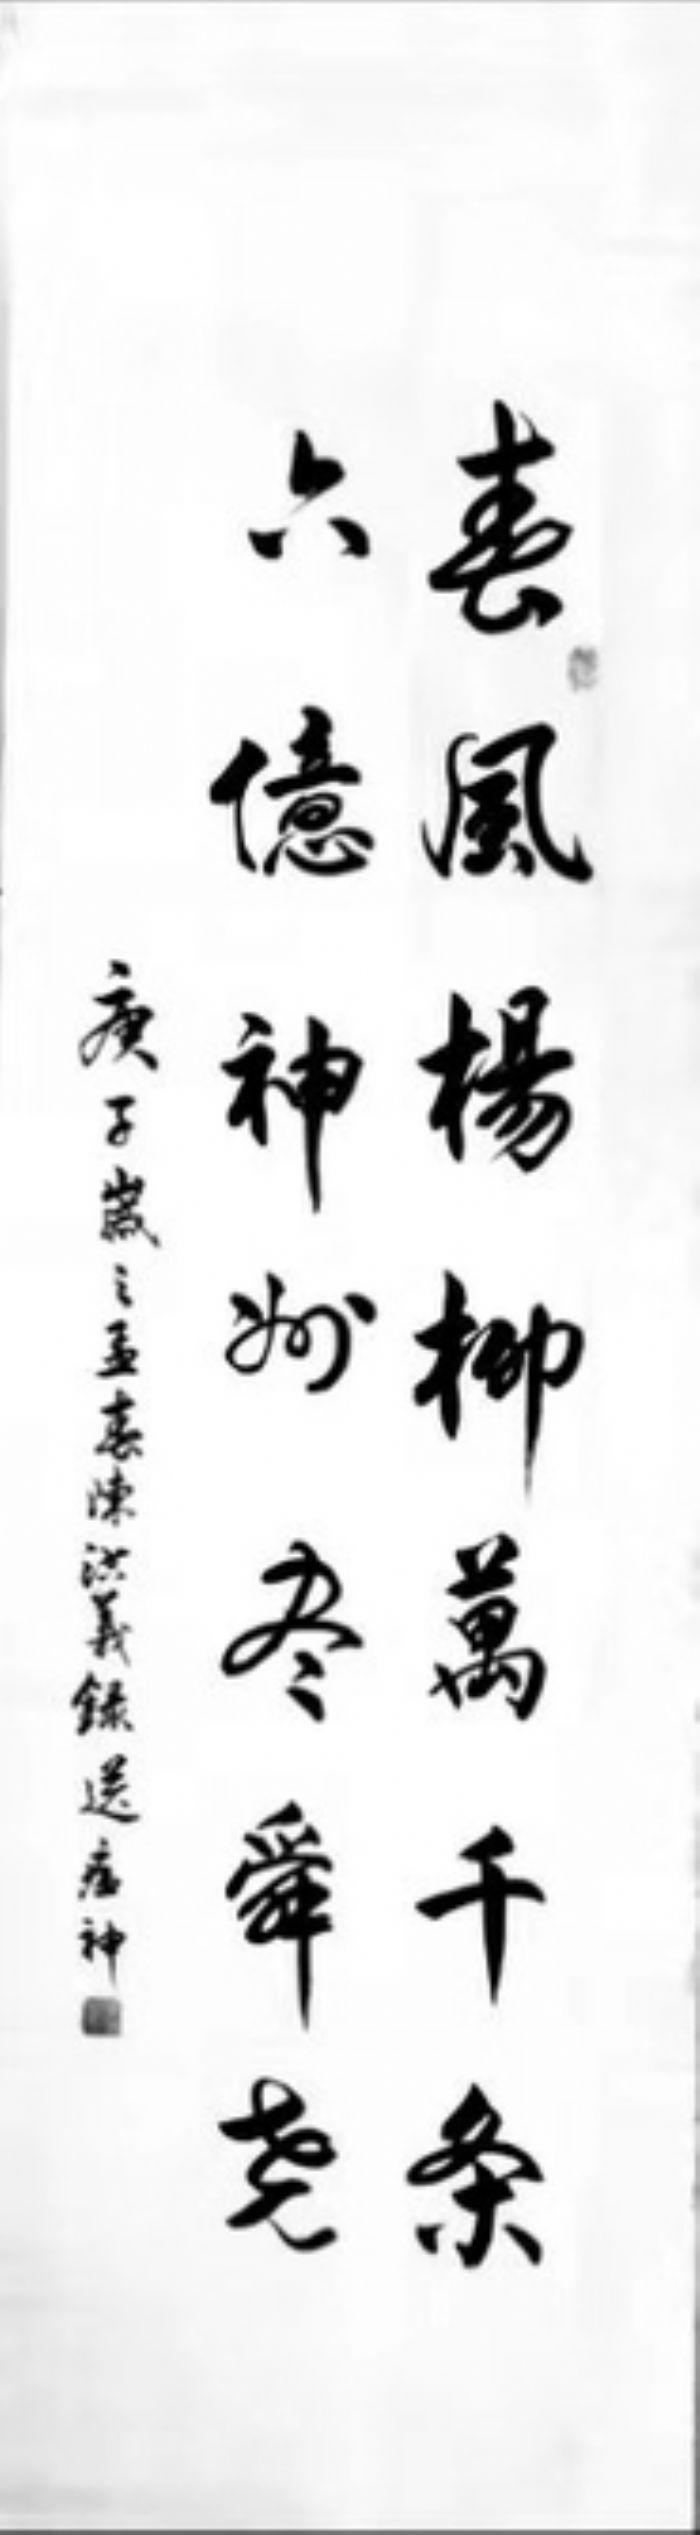 春風楊柳萬千条
六億神州尽舜尭
庚子歲之孟春陳洪義錄送瘟神